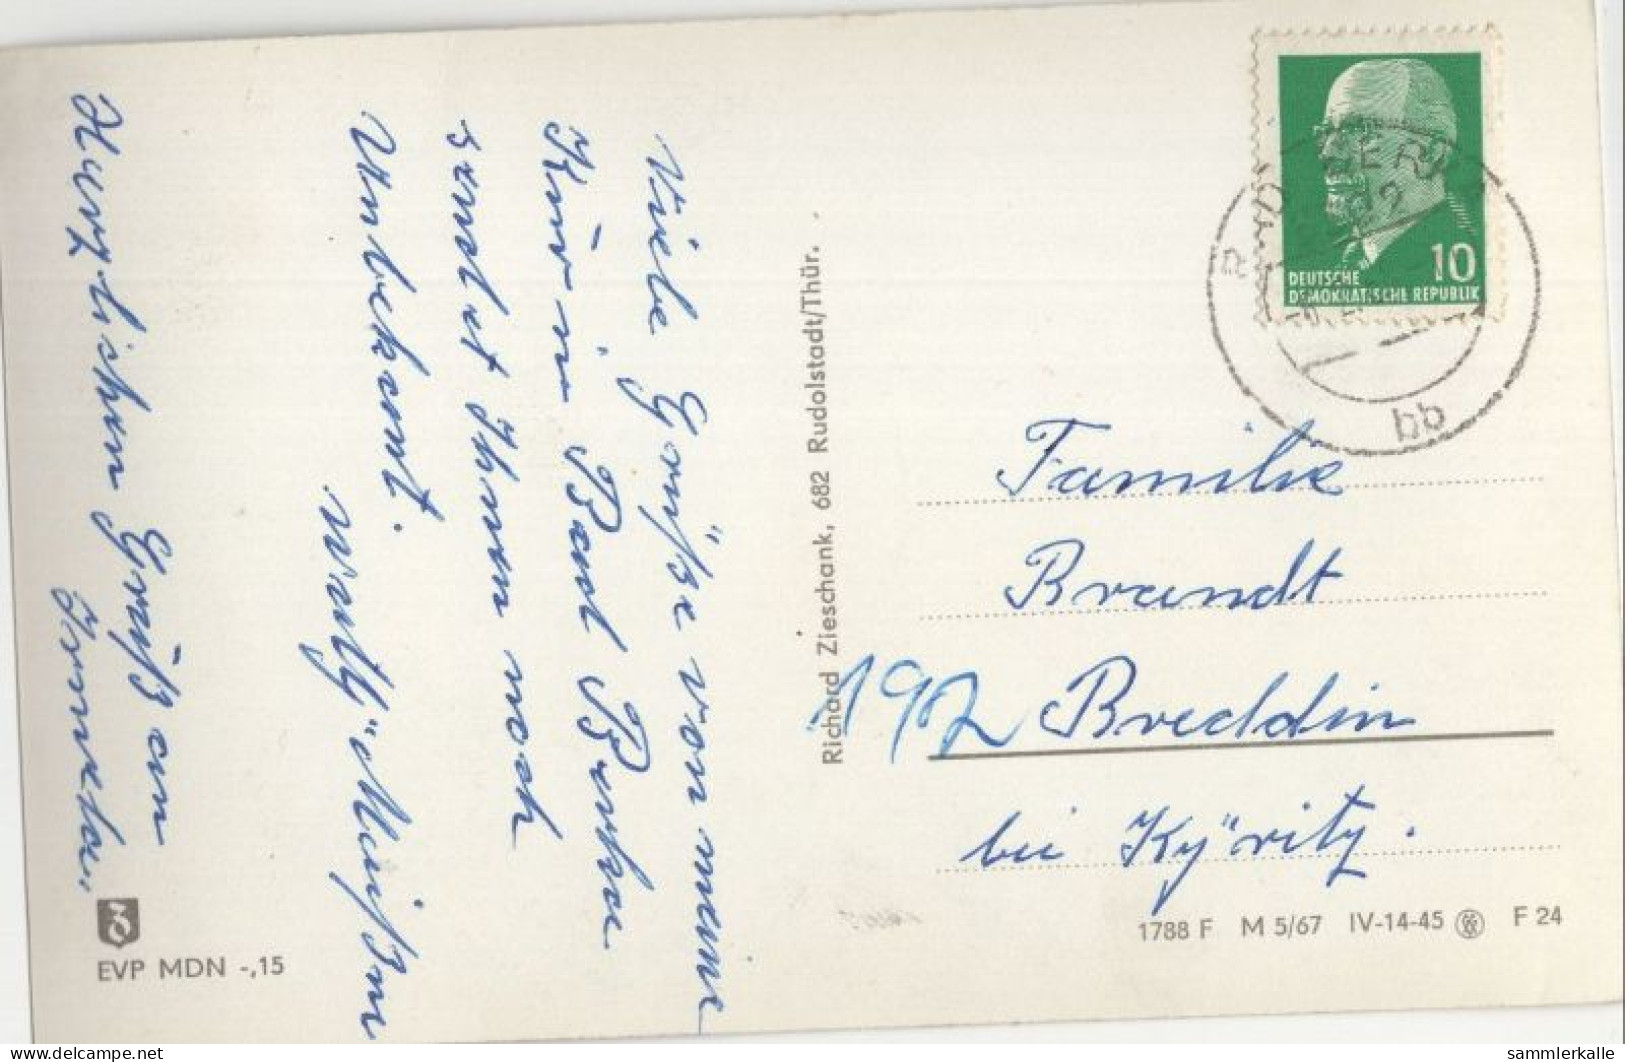 Viele Grüße von meine
Kur in Bad Berka
sendet Ihnen noch
Unbekant.
Willy Meißn
Herzlichen Gruß an
Richard Zieschank, 682 Rudolstadt/Thür.
EVP MDN -,15
10
DEUTSCHE
DEMOKRATISCHE REPUBLIK
bb
Familie
Brandt
192 Breddin
bei Kyritz.
1788 F M 5/67 IV-14-45 F 24
www.delcampe.net
sammlerkalle